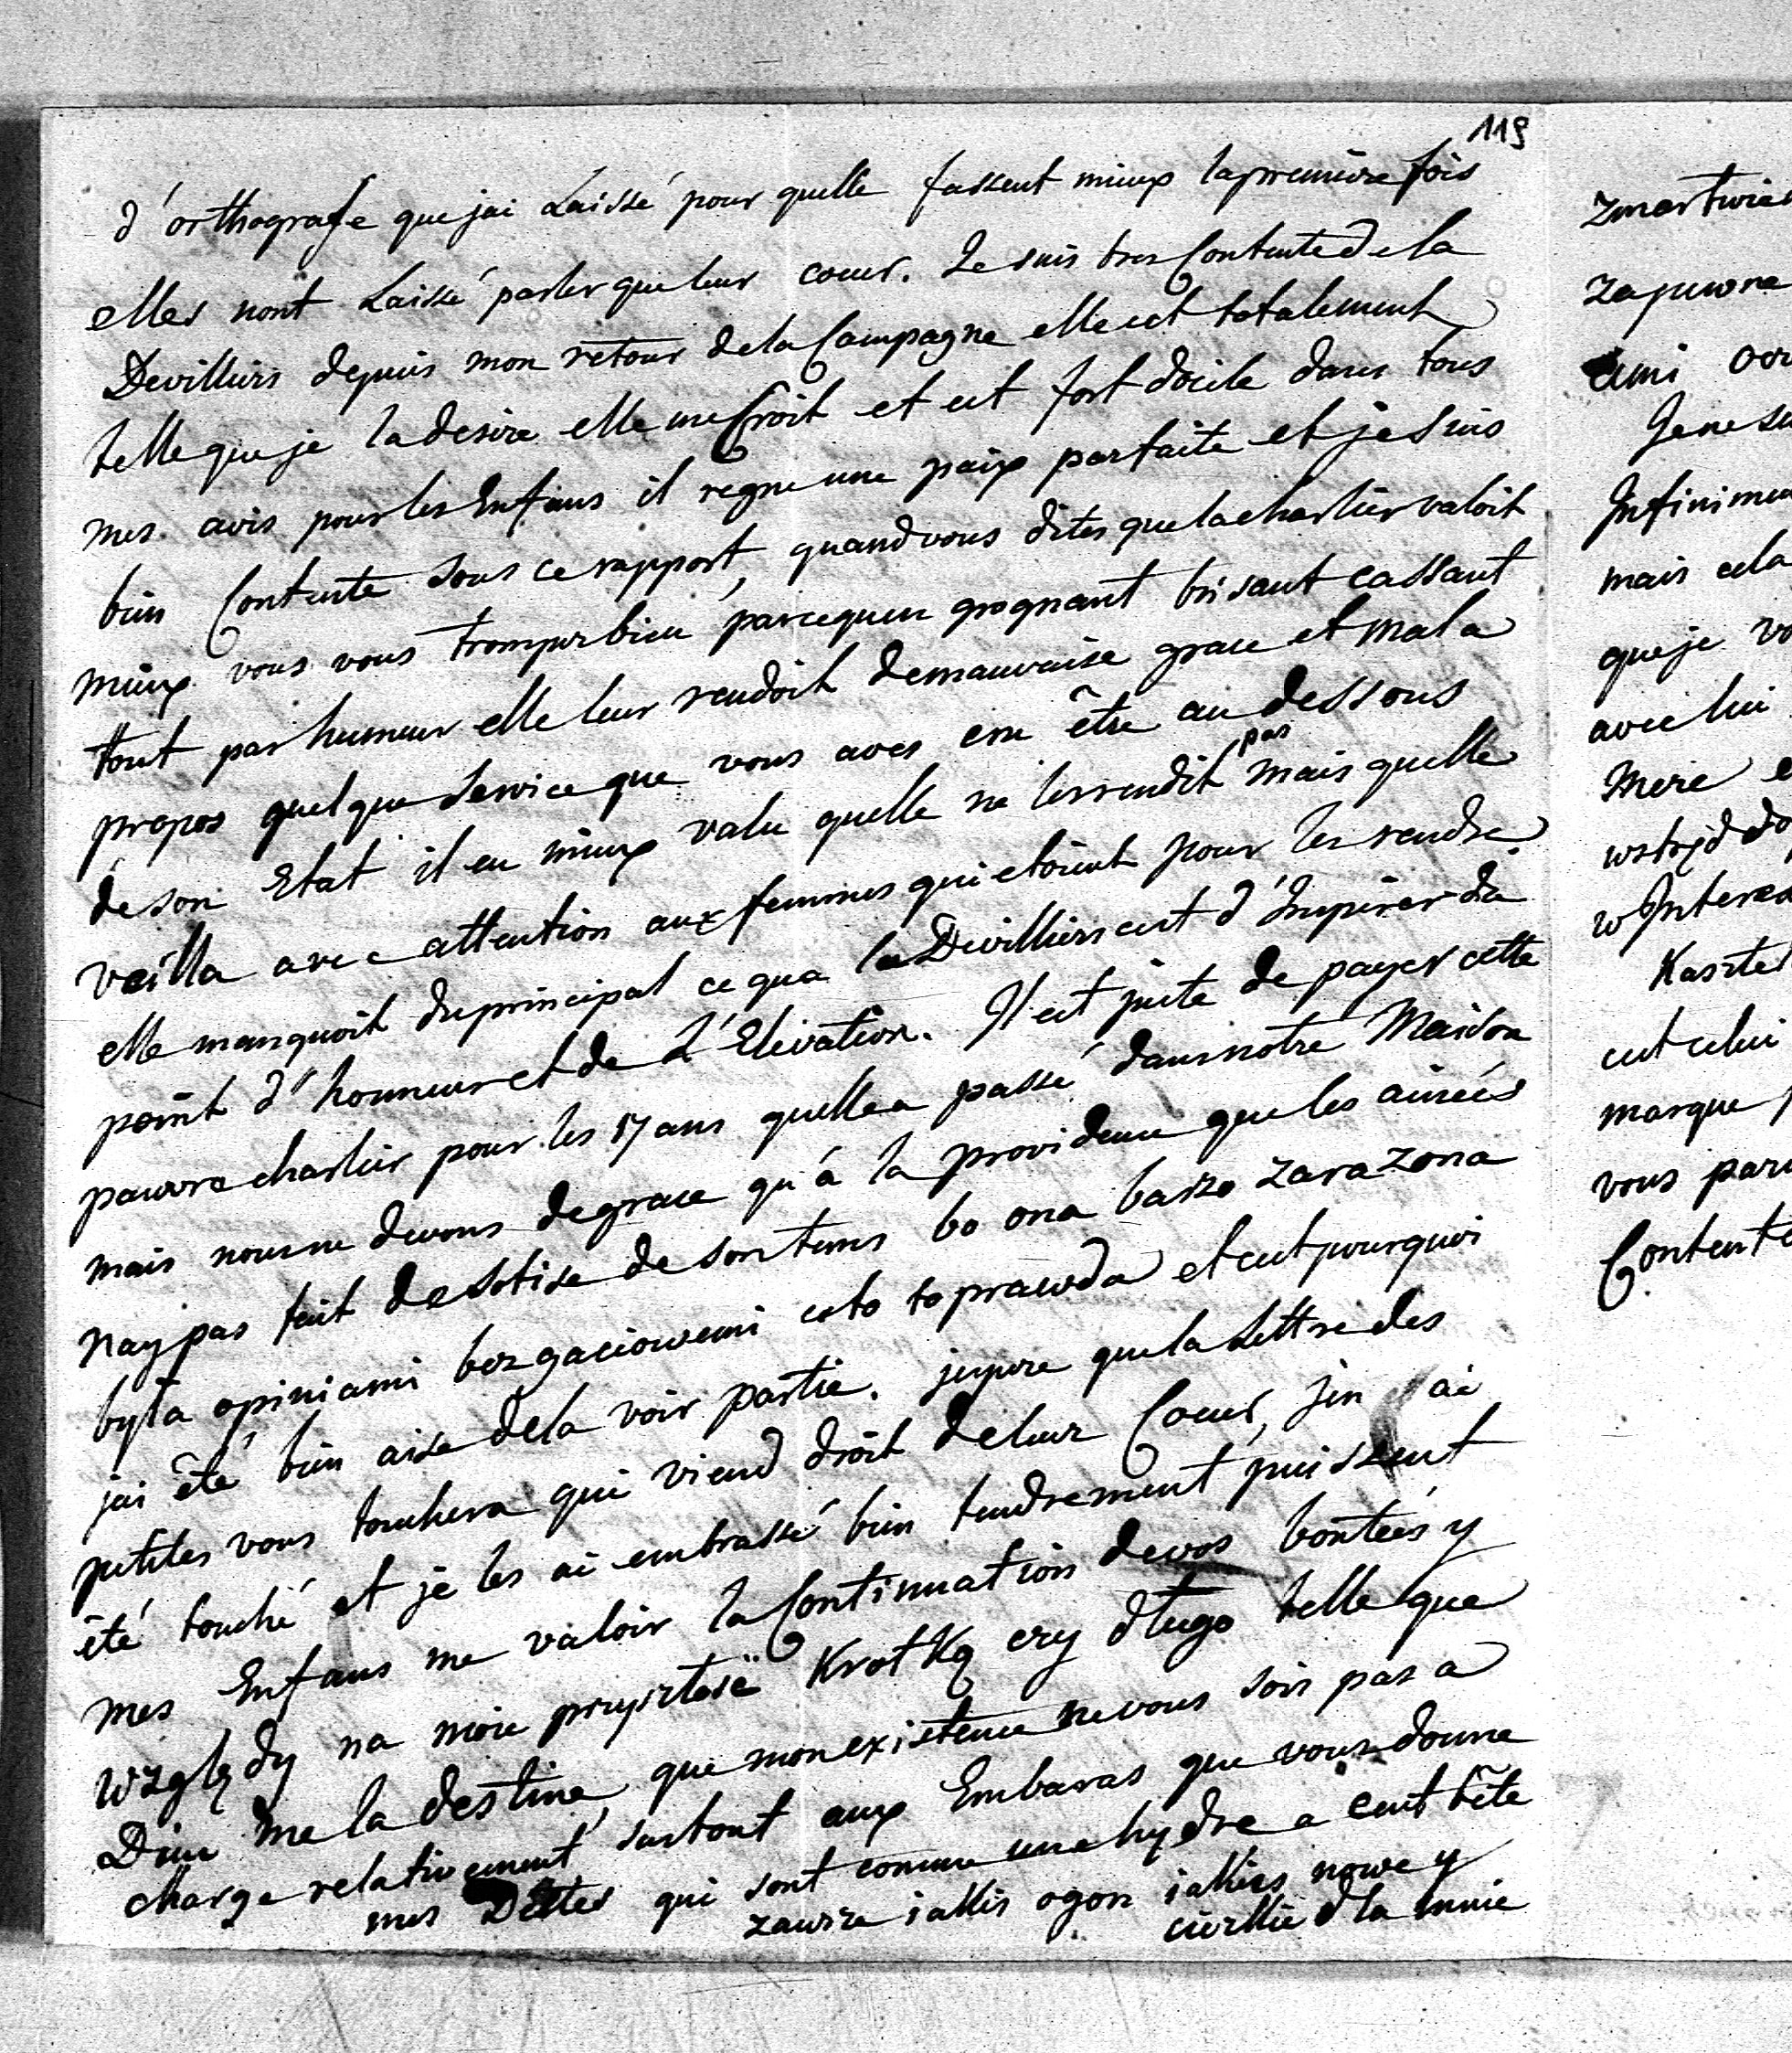 119
d'orthografe que jai Laissé pour quelle fassent mieux la premiere fois
elles nont Laissé parler que leur coeur. Je suis tres Contente de la
Devilliers depuis mon retour de la Campagne elle est totalement
telle que je la desire elle me Croit et est fort docile dans tous
mes avis pour les Enfans il regne une paix parfaite et je suis
bien Contente sous ce rapport, quand vous dites que la charlier valoit
mieux vous vous trompez bien parcequen grognant brisant cassant
tout par humeur elle leur rendoit de mauvaise grace et mal a
propos quelque service que vous aves cru être au dessous
de son Etat il eu mieux valu quelle ne les rendit pas mais quelle
veilla avec attention aux femmes qui etoient pour les rendre.
elle manquoit du principal ce qua la Devilliers cest d'Inspirer du
point d'honneur et de L'Elevation. Il est juste de payer cette
pauvre charlier pour les 17 ans quelle a passé dans notre Maison
mais nous ne devons de grace qu'á la providence que les ainées
nay pas fait de sotise de son tems bo ona barzo zarazona
była opiniami bezgaciowemi a to to prawda et cest pourquoi
jai été bien aise de la voir partie. jespere que la Lettre des
petites vous touchera qui viend droit de leur Coeur, jen ai
été touché et je les ai embrassé bien tendrement puissent
mes Enfans me valoir la Continuation de vos bontées y
względy na moie przyszłosć krotką czy długo telle que
Dieu me la destine, que mon existence ne vous soir pas a
charge relativement surtout aux Embaras que vous donne
mes Dettes qui sont comme une hydre a cent tête
zawsze iakis ogon iakies nowe y
cięzkie dla mnie
zmartwien
zapewne
ami
Je ne su
Infinimen
mais cela
que je vo
avec lui
Mere e
wstyd do
w Interes
Kasztel
est celui
marque p
vous paru
Contente